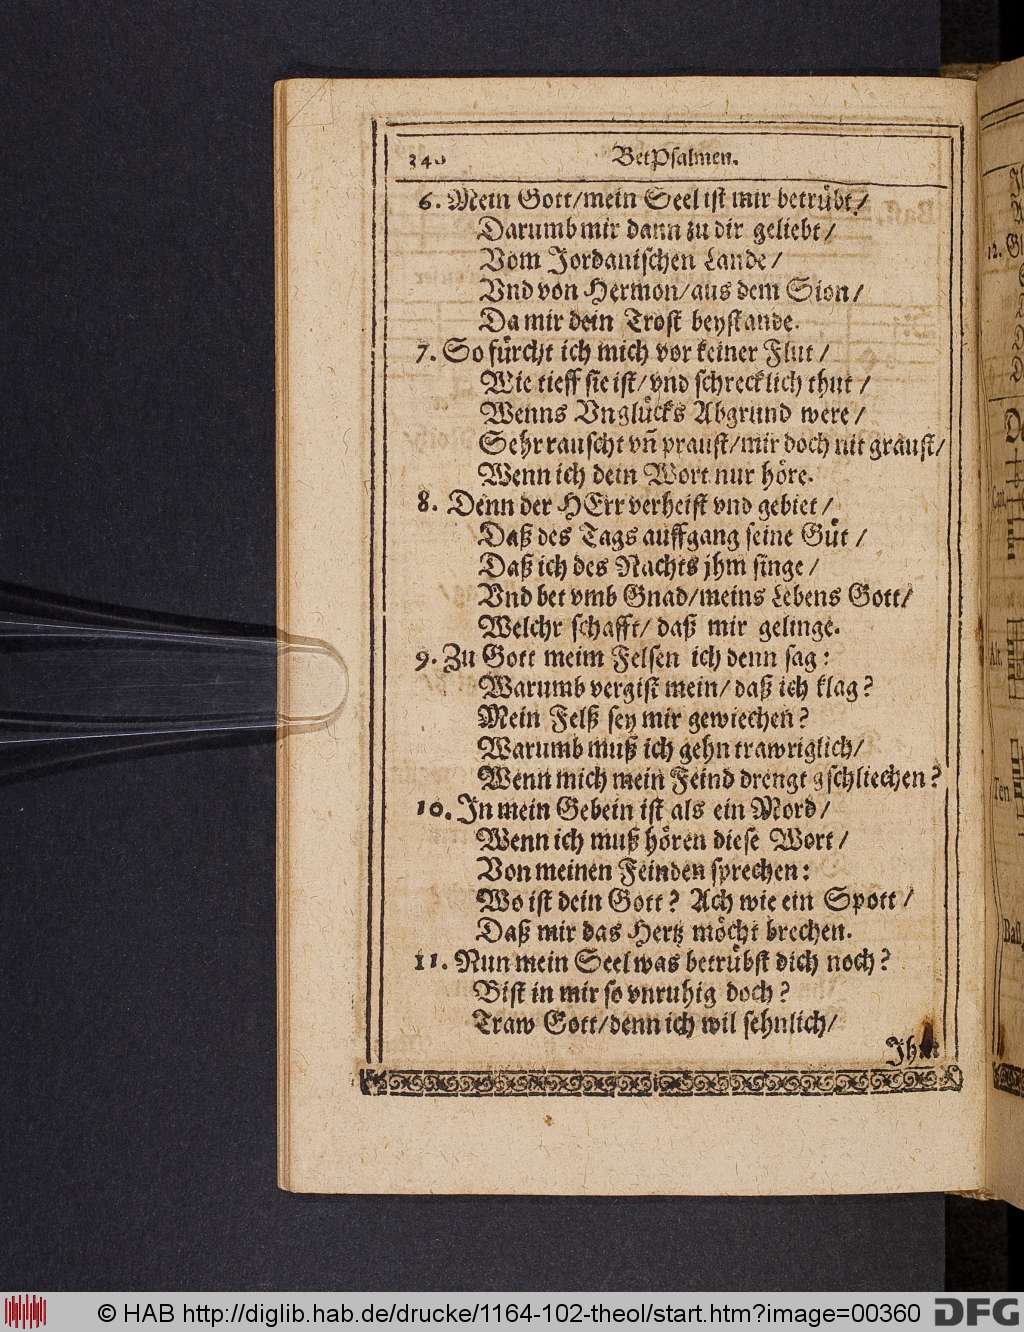 340 BetPsalmen.
6. Mein Gott/mein Seel ist mir betrübt/
Darumb mir dann zu dir geliebt/
Vom Jordanischen Lande/
Vnd von Hermon/aus dem Sion/
Da mir dein Trost beystande.
7. So fürcht ich mich vor keiner Flut/
Wie tieff sie ist/vnd schrecklich thut/
Wenns Vnglücks Abgrund were/
Sehr rauscht vn̄ praust/mir doch nit graust/
Wenn ich dein Wort nur höre.
8. Denn der HErr verheist vnd gebiet/
Daß des Tags auffgang seine Güt/
Daß ich des Nachts jhm singe/
Vnd bet vmb Gnad/meins Lebens Gott/
Welchr schafft/ daß mir gelinge.
9. Zu Gott meim Felsen ich denn sag:
Warumb vergist mein/ daß ich klag?
Mein Felß sey mir gewiechen?
Warumb muß ich gehn trawriglich/
Wenn mich mein Feind drengt gschliechen?
10. In mein Gebein ist als ein Mord/
Wenn ich muß hören diese Wort/
Von meinen Feinden sprechen:
Wo ist dein Gott? Ach wie ein Spott/
Daß mir das Hertz möcht brechen.
11. Nun mein Seel was betrübst dich noch?
Bist in mir so vnruhig doch?
Traw Gott/denn ich wil sehnlich/
Jhm
12. Gl
Cant
Alt
Ten
Baß
© HAB http://diglib.hab.de/drucke/1164-102-theol/start.htm?image=00360
DFG